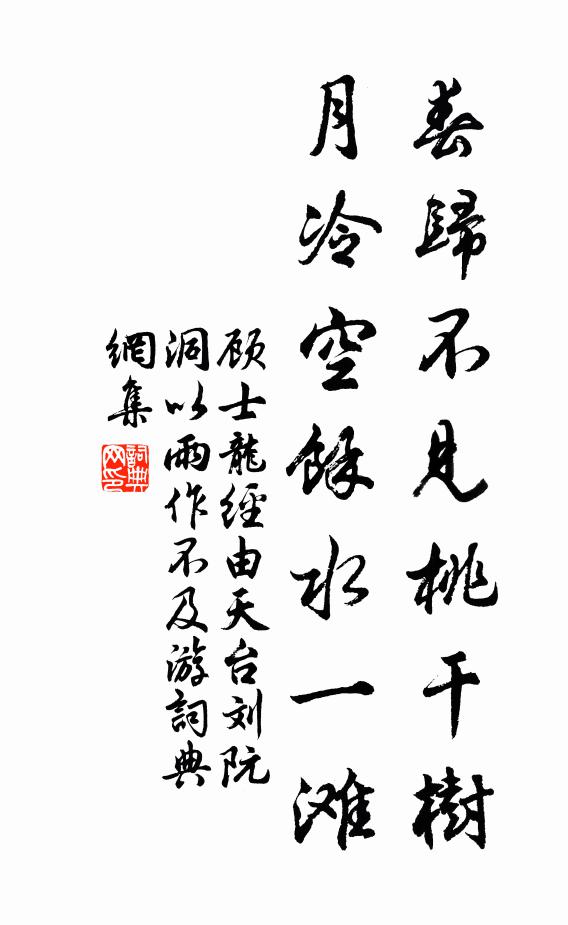 春歸不見桃干樹
月冷空餘水一滩
顾士龍經由天台刘阮
洞以雨作不及游詞典
網集
詞典
网印